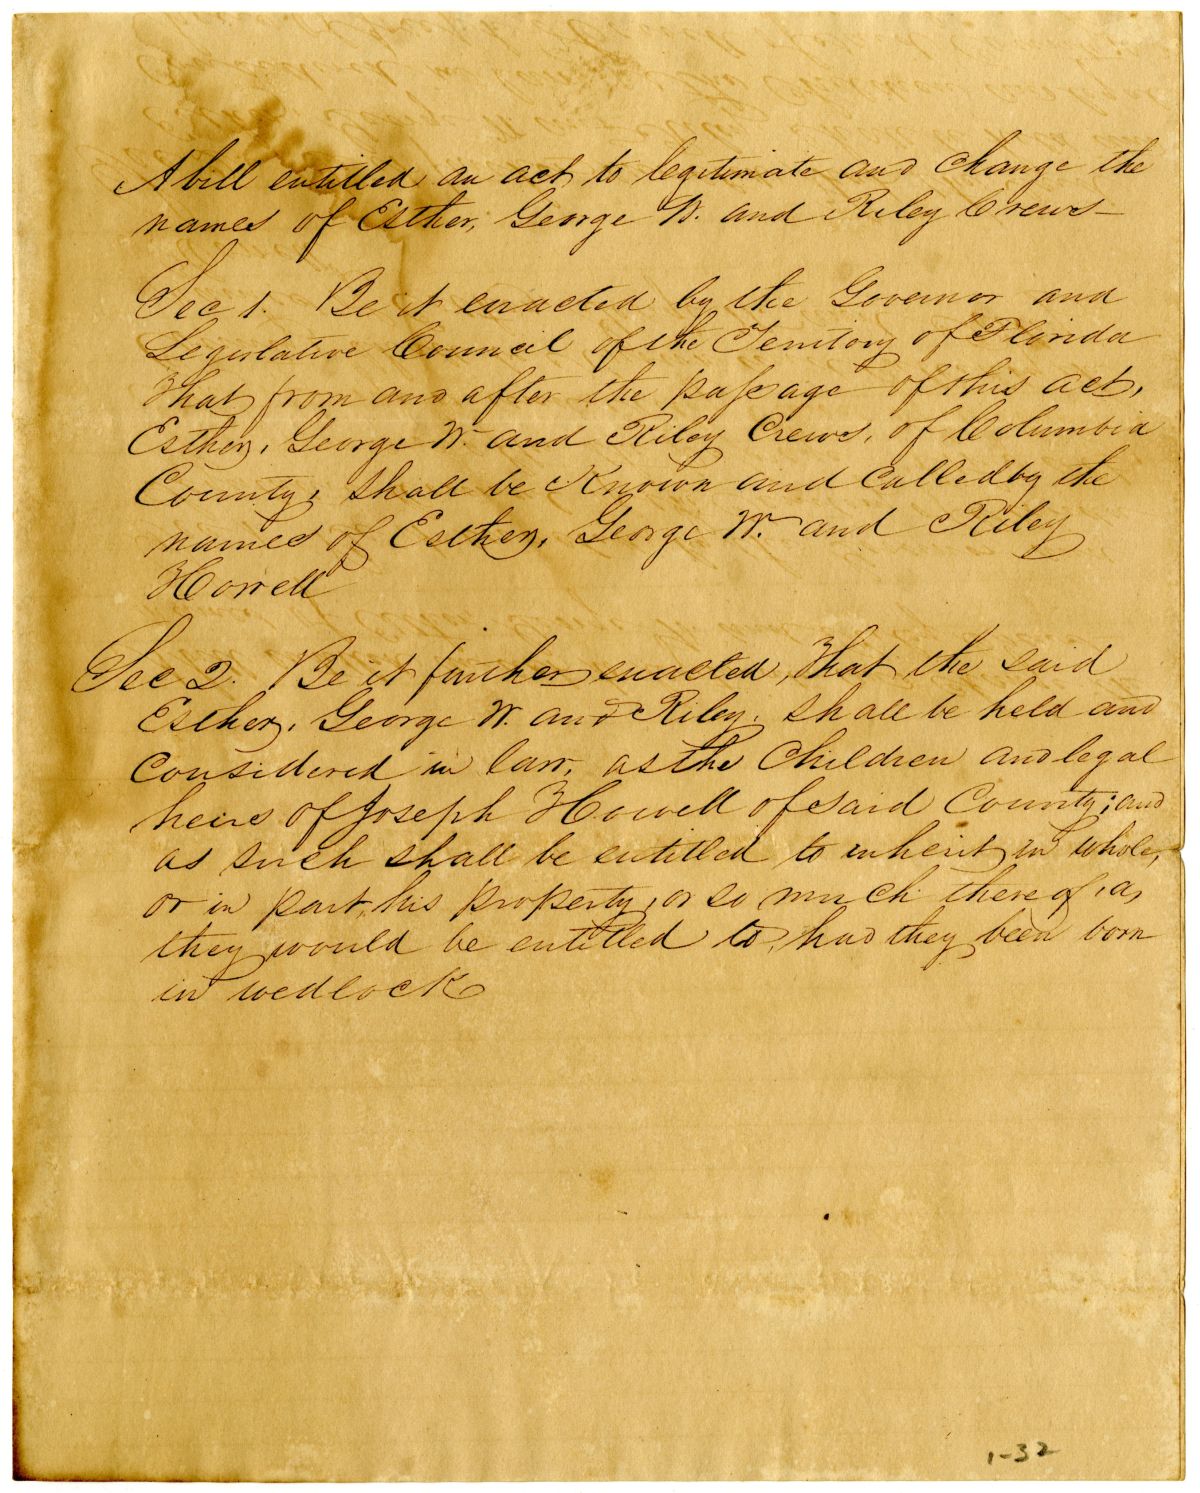 A bill entitled an act to legitimate and change the
names of Esther, George W. and Riley Crews—
Sec 1. Be it enacted by the Governor and
Legislative Council of the Territory of Florida
That from and after the passage of this act,
Esther, George W. and Riley Crews, of Columbia
County, shall be Known and Called by the
names of Esther, George W. and Riley
Howell
Sec 2. Be it further enacted, That the said
Esther, George W. and Riley, shall be held and
Considered in law, as the Children and legal
heirs of Joseph Howell of said County; and
as such shall be entitled to inherit in whole,
or in part, his property, or so much there of, as
they would be entitled to, had they been born
in wedlock
1-32